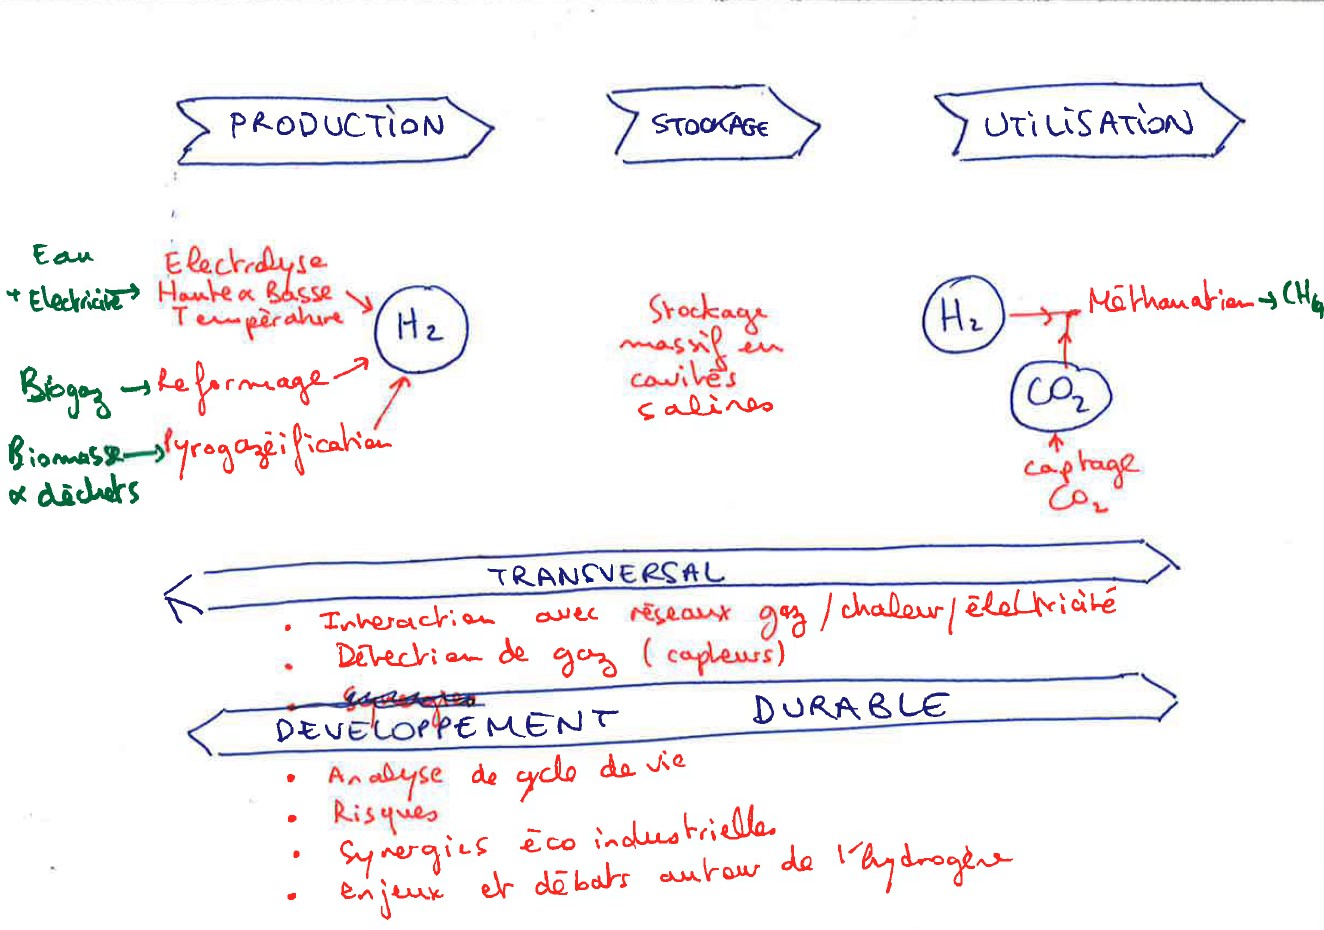 PRODUCTION
STOCKAGE
UTILISATION
Eau
+ Electricité
Electrolyse
Haute & Basse
Température
H2
Biogaz
Reformage
Biomasse
& déchets
Pyrogazéification
Stockage
massif en
cavités
salines
H2
Méthanation
CH4
CO2
captage
CO2
TRANSVERSAL
• Interaction avec réseaux gaz / chaleur / électricité
• Détection de gaz (capteurs)
DEVELOPPEMENT DURABLE
• Analyse de cycle de vie
• Risques
• Synergies éco industrielles
• Enjeux et débats autour de l'hydrogène